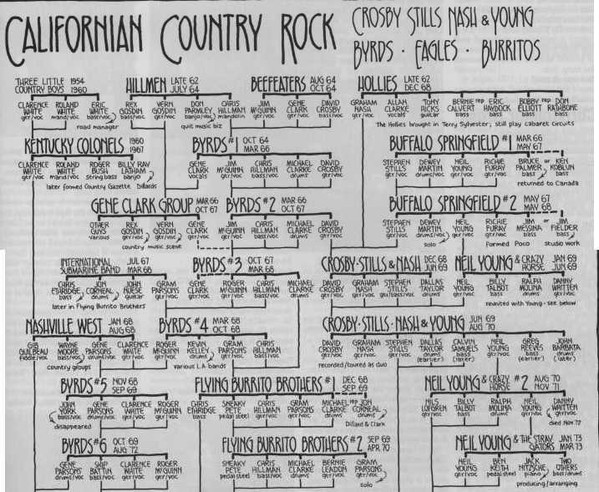 CALIFORNIAN COUNTRY ROCK
CROSBY STILLS NASH & YOUNG
BYRDS · EAGLES · BURRITOS
THREE LITTLE COUNTRY BOYS 1954 1960
CLARENCE WHITE gtr/voc
ROLAND WHITE mand/voc
ERIC WHITE bass/voc
road manager
HILLMEN LATE 62 JULY 64
REX GOSDIN
VERN GOSDIN gtr/voc
DON PARMLEY banjo/voc
CHRIS HILLMAN mandolin
quit music biz
BEEFEATERS AUG 64 OCT 64
JIM McGUINN gtr/voc
GENE CLARK gtr/voc
DAVID CROSBY gtr/voc
HOLLIES LATE 62 DEC 68
GRAHAM NASH gtr/voc
ALLAN CLARKE voc
TONY HICKS guitar
BERNIE CALVERT bass
ERIC HAYDOCK bass
BOBBY ELLIOTT drums
DON RATHBONE
The Hollies brought in Terry Sylvester; still play cabaret circuits
KENTUCKY COLONELS 1960 1967
CLARENCE WHITE gtr/voc
ROLAND WHITE mand/voc
ROGER BUSH string bass
BILLY RAY LATHAM banjo
later formed Country Gazette
Dillards
BYRDS #1 OCT 64 MAR 66
GENE CLARK vocals
JIM McGUINN gtr/voc
CHRIS HILLMAN bass/voc
MICHAEL CLARKE drums
DAVID CROSBY gtr/voc
BUFFALO SPRINGFIELD #1 MAR 66 MAY 67
STEPHEN STILLS gtr/voc
DEWEY MARTIN drums/voc
NEIL YOUNG gtr/voc
RICHIE FURAY gtr/voc
BRUCE PALMER bass
KEN KOBLUN bass
returned to Canada
GENE CLARK GROUP MAR 66 OCT 67
OTHER GUYS various
REX GOSDIN
VERN GOSDIN gtr/voc
GENE CLARK gtr/voc
country music scene
BYRDS #2 MAR 66 OCT 67
JIM McGUINN gtr/voc
CHRIS HILLMAN bass/voc
MICHAEL CLARKE drums
DAVID CROSBY gtr/voc
BUFFALO SPRINGFIELD #2 MAY 67 MAY 68
STEPHEN STILLS gtr/voc
DEWEY MARTIN drums
NEIL YOUNG gtr/voc
RICHIE FURAY gtr/voc
JIM MESSINA
JIM FIELDER bass
solo
formed Poco
studio work
INTERNATIONAL SUBMARINE BAND JUL 67 MAR 68
CHRIS ETHRIDGE bass
JON CORNEAL drums
JOHN NUESE guitar
GRAM PARSONS gtr/voc
later in Flying Burrito Brothers
BYRDS #3 OCT 67 MAR 68
GENE CLARK
ROGER McGUINN
CHRIS HILLMAN
MICHAEL CLARKE drums
CROSBY·STILLS & NASH DEC 68 JUN 69
DAVID CROSBY gtr/voc
GRAHAM NASH gtr/voc
STEPHEN STILLS
DALLAS TAYLOR drums
NEIL YOUNG & CRAZY HORSE JAN 69 JUN 69
NEIL YOUNG gtr/voc
BILLY TALBOT bass
RALPH MOLINA drums
DANNY WHITTEN gtr/voc
reunited with Young - see below
NASHVILLE WEST JAN 68 AUG 68
GIB GUILBEAU
WAYNE MOORE bass/voc
GENE PARSONS
CLARENCE WHITE gtr/voc
country groups
BYRDS #4 MAR 68 OCT 68
ROGER McGUINN gtr/voc
KEVIN KELLEY drums
GRAM PARSONS gtr/voc
CHRIS HILLMAN bass/voc
various L.A. bands
CROSBY·STILLS·NASH & YOUNG JUN 69 AUG 70
DAVID CROSBY gtr/voc
GRAHAM NASH gtr/voc
STEPHEN STILLS gtr/voc
DALLAS TAYLOR drums (earlier)
CALVIN SAMUELS bass (earlier)
NEIL YOUNG gtr/voc
GREG REEVES bass
JOHN BARBATA drums (later)
recorded/toured as duo
BYRDS #5 NOV 68 SEP 69
JOHN YORK bass/voc
GENE PARSONS
CLARENCE WHITE gtr/voc
ROGER McGUINN gtr/voc
disappeared
FLYING BURRITO BROTHERS #1 DEC 68 SEP 69
CHRIS ETHRIDGE bass
SNEAKY PETE pedal steel
CHRIS HILLMAN gtr/voc
GRAM PARSONS gtr/voc
MICHAEL CLARKE drums
JON CORNEAL drums
Dillard & Clark
NEIL YOUNG & CRAZY HORSE #2 AUG 70 NOV 71
NILS LOFGREN
BILLY TALBOT bass
RALPH MOLINA drums
NEIL YOUNG gtr/voc
DANNY WHITTEN gtr/voc
died Nov 72
BYRDS #6 OCT 69 AUG 72
GENE PARSONS
SKIP BATTIN bass/voc
CLARENCE WHITE gtr/voc
ROGER McGUINN gtr/voc
FLYING BURRITO BROTHERS #2 SEP 69 APR 70
SNEAKY PETE pedal steel
CHRIS HILLMAN
MICHAEL CLARKE drums
BERNIE LEADON gtr/voc
GRAM PARSONS gtr/voc
solo
NEIL YOUNG & THE STRAY GATORS JAN 73 MAR 73
NEIL YOUNG gtr/voc
BEN KEITH pedal steel
JACK NITZSCHE piano
TWO OTHERS
producing/arranging